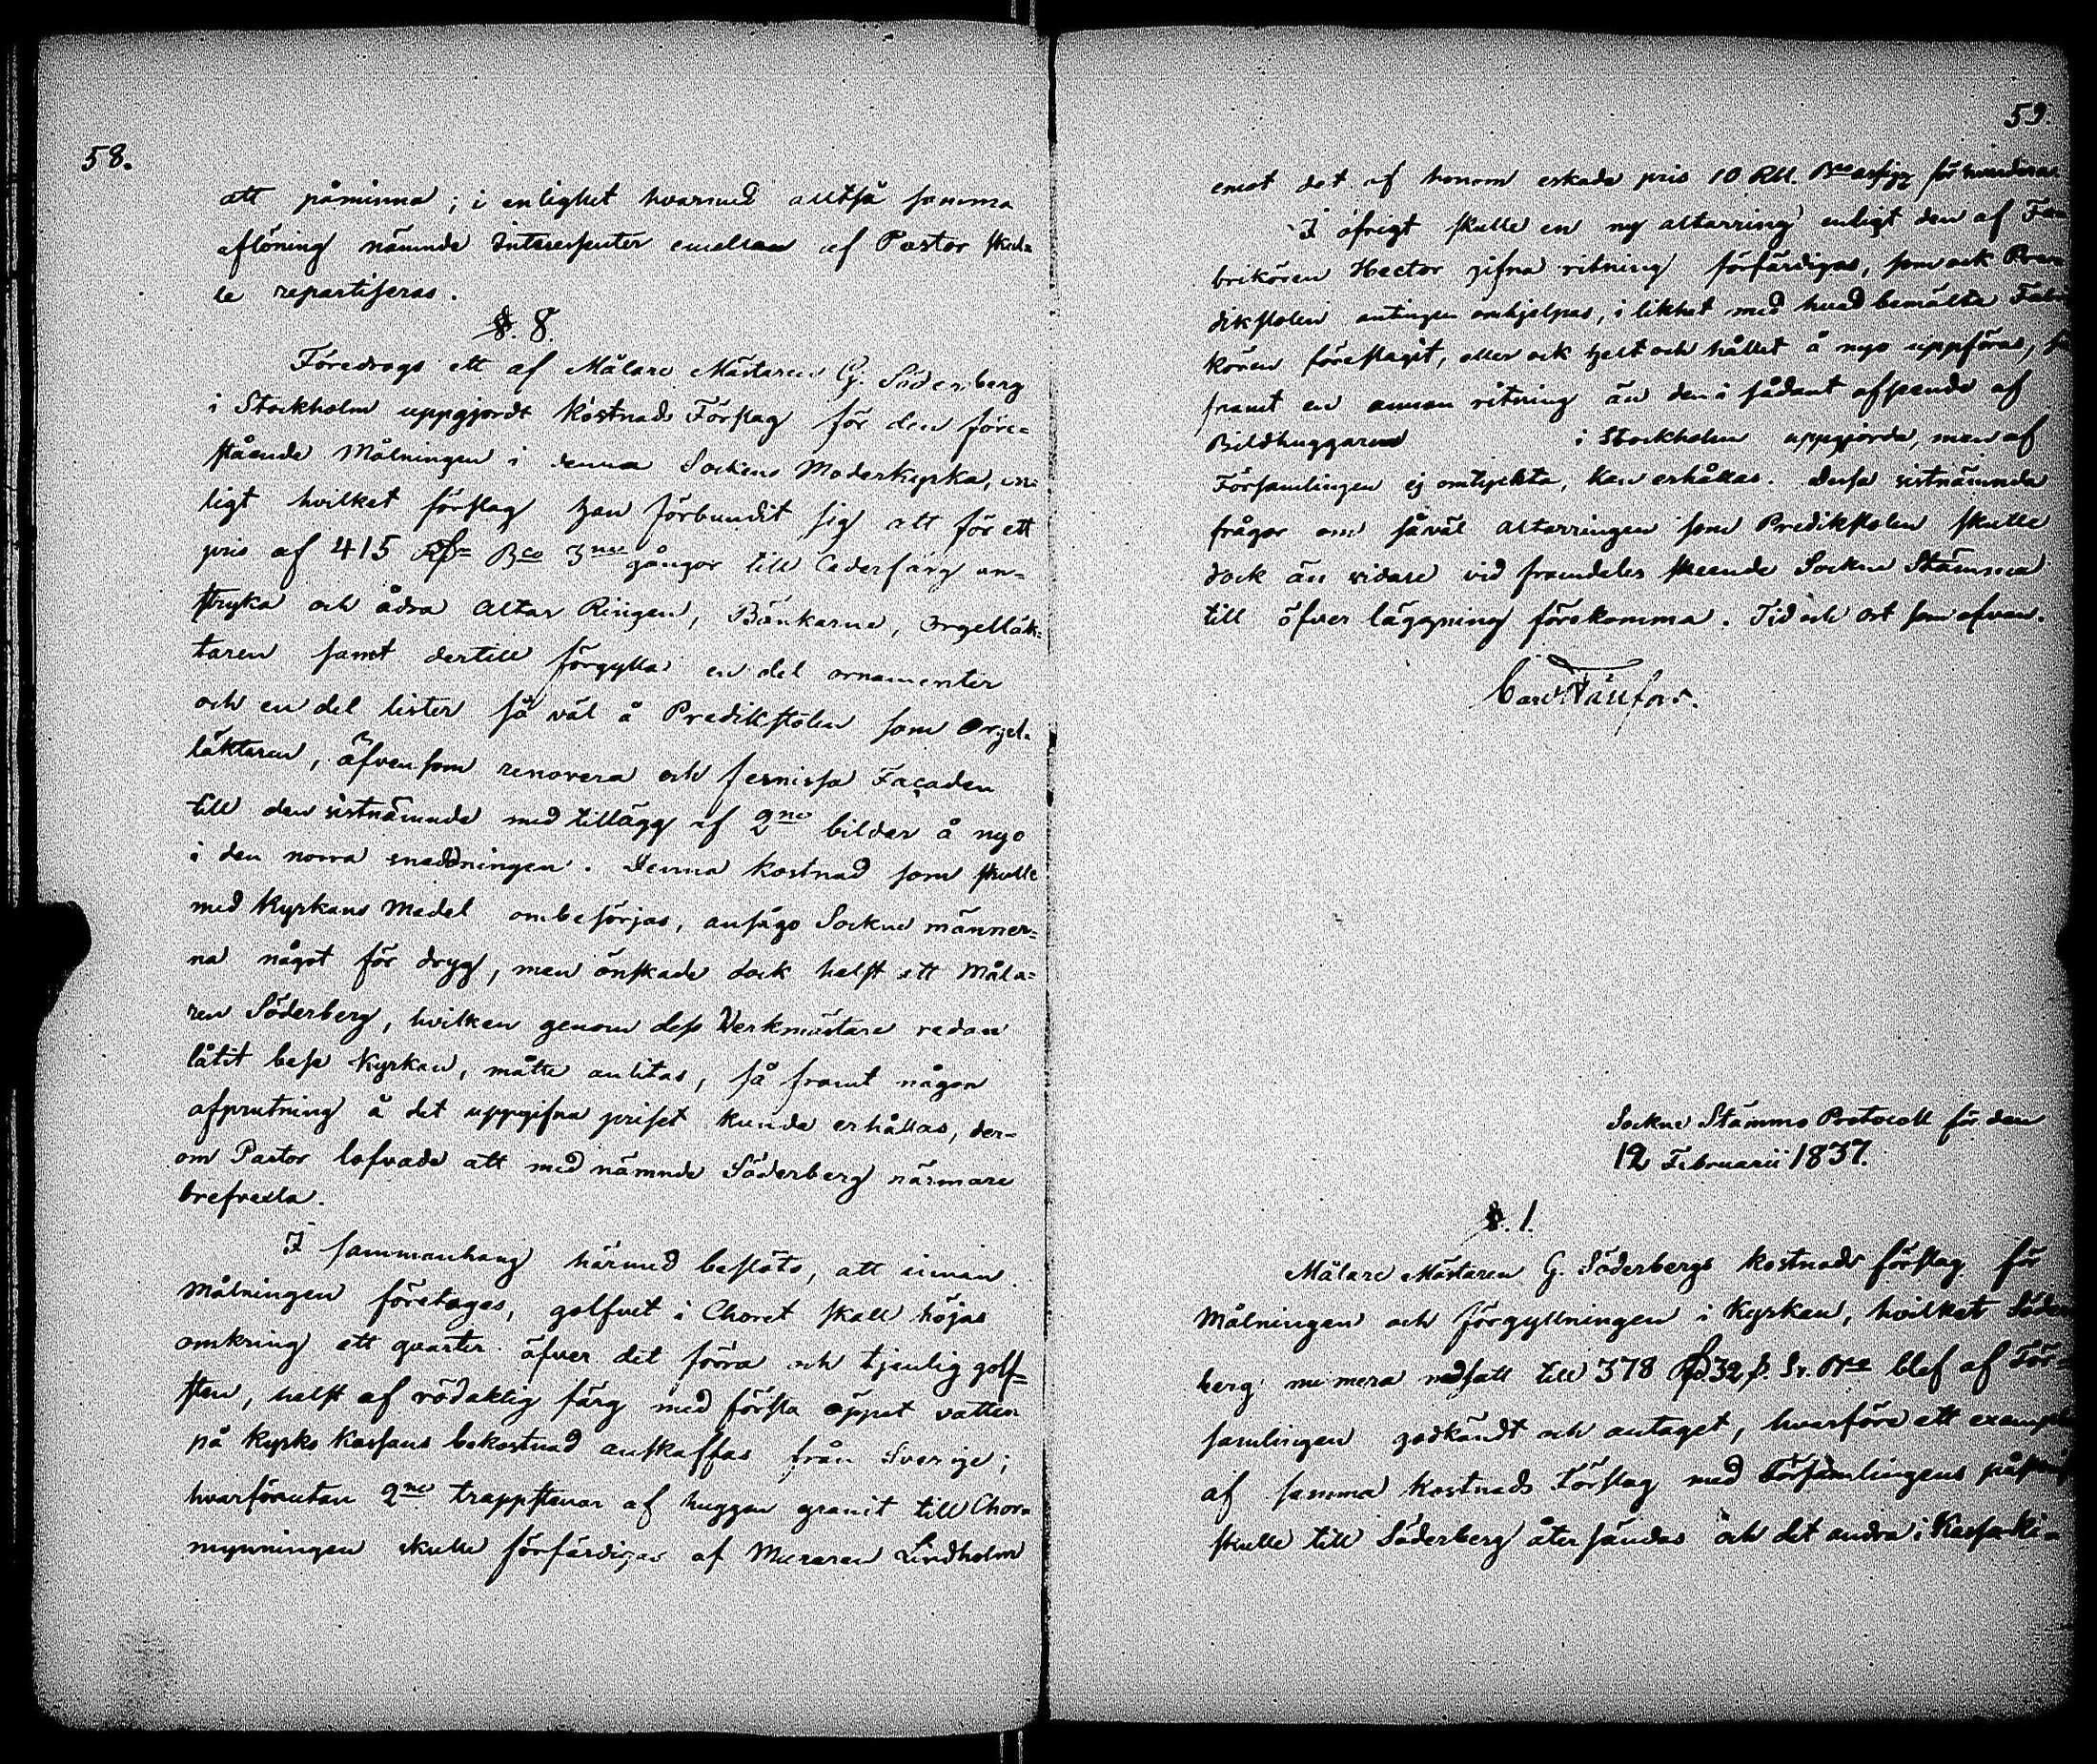 58.
att påminna; i enlighet hvarmed alltså samma
aflöning nämnde Interessenter emellan af Pastor skul=
le repartiseras.
§. 8.
Föredrogs ett af Målare Mästaren G. Söderberg
i Stockholm uppgjordt kostnads Förslag för den före=
stående Målningen i denna Sockens Moderkyrka, en=
ligt hvilket förslag han förbundit sig att för ett
pris af 415 Rd Bco 3ne gångor till Cederfärg an=
stryka och ådra Altar Ringen, Bänkarne, Orgelläk=
taren samt dertill förgylla en del ornamenter
och en del lister så väl å Predikstolen som Orgel=
läktaren, äfvensom renovera och fernissa Façaden
till den sistnämnde med tillägg af 2ne bilder å nyo
i den norra inredningen. Denna kostnad som skulle
med Kyrkans Medel ombesörjas, ansågo Sockne männer=
na något för dryg, men önskade dock helst att Måla=
ren Söderberg, hvilken genom dess Verkmästare redan
låtit bese Kyrkan, måtte anlitas, så framt någon
afprutning å det uppgifna priset kunde erhållas, der=
om Pastor lofvade att med nämnde Söderberg närmare
brefvexla.
I sammanhang härmed beslöts, att innan
Målningen företages, golfvet i Choret skall höjas
omkring ett quarter öfver det förra och tjenlig golf=
sten, helst af rödaktig färg med första öppet vatten
på Kyrko Kassans bekostnad anskaffas från Sverige;
hvarförutan 2ne trappstenar af huggen granit till Chor=
mynningen skulle förfärdigas af Muraren Lindholm
59.
emot det af honom eskade pris 10 Rbl. Bco assign för hvardera
I öfrigt skulle en ny altarring enligt den af Fa=
brikören Hector gifna ritning förfärdigas, som ock Pre=
dikstolen antingen omhjelpas, i likhet med hvad bemälte Fabri
kören föreslagit, eller ock helt och hållet å nyo uppföras, så
framt en annan ritning än den i sådant afseende af
Bildhuggaren i Stockholm uppgjorde, men af
Församlingen ej omtyckta, kan erhållas. Dessa sistnämnda
frågor om såväl Altarringen som Predikstolen skulle
dock än vidare vid framdeles skeende Sockne Stämma
till öfver läggning förekomma. Tid och ort som ofvan.
Carl
Sockne Stämmo Protocoll för den
12 Februarii 1837.
§. 1.
Målare Mästaren G. Söderbergs kostnads förslag för
Målningen och förgyllningen i Kyrkan, hvilket Söder
berg nu mera nedsatt till 378 Rd 32 s. Sv. Bco blef af För=
samlingen godkändt och antaget, hvarföre ett exemplar
af samma kostnads Förslag med Församlingens påskrift
skulle till Söderberg återsändas och det andra i Kassa Ki=